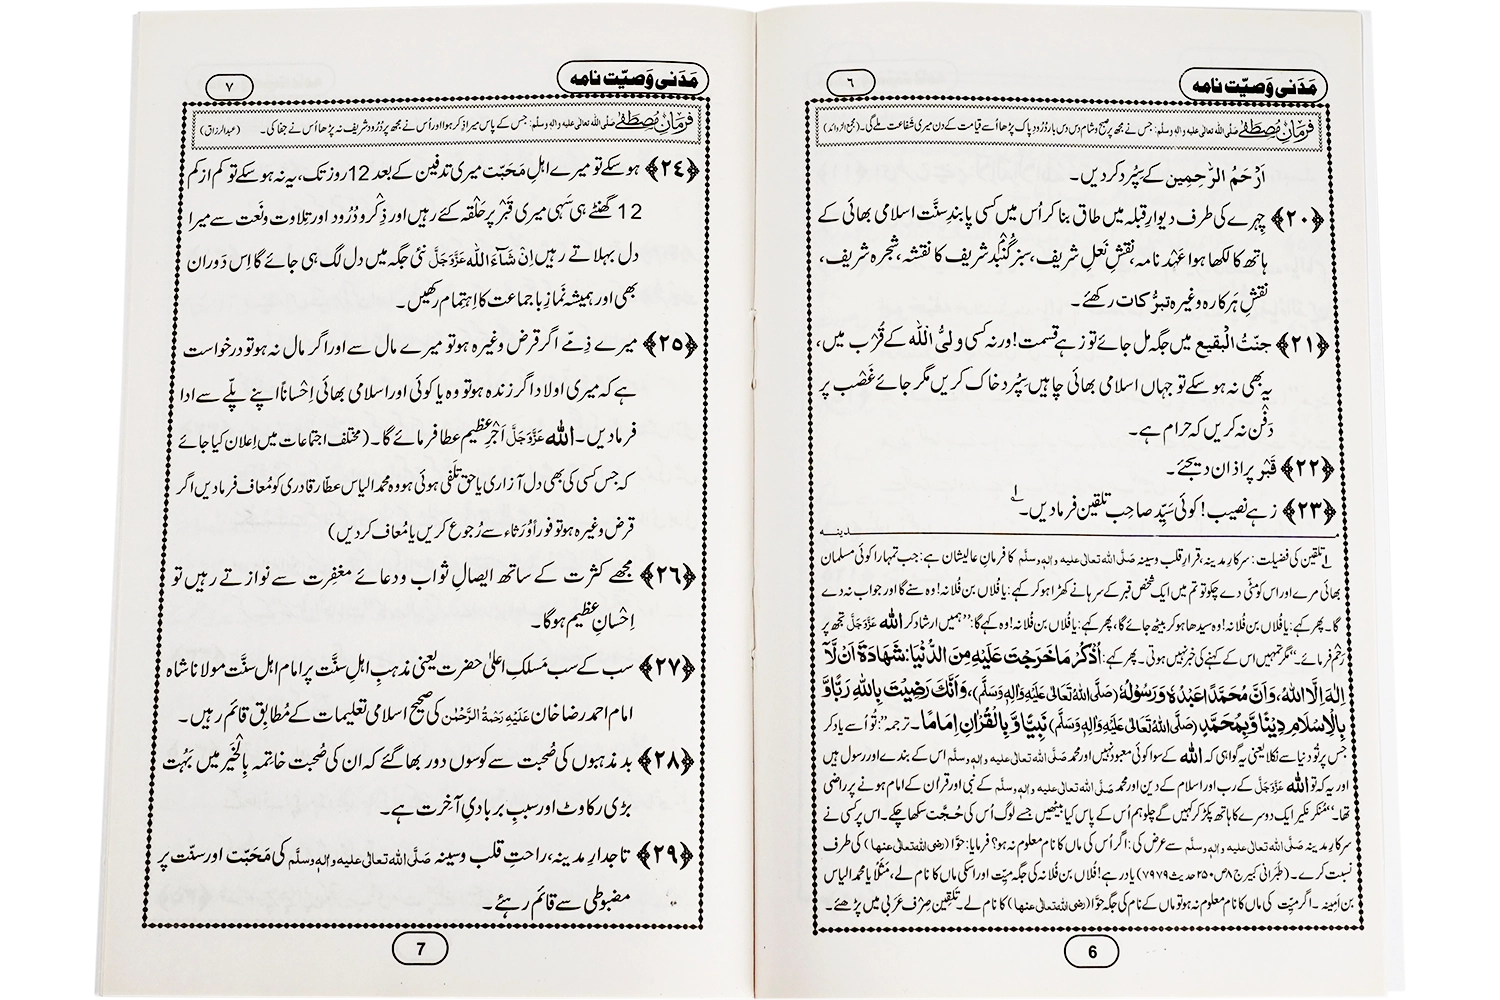 مَدَنی وَصیّت نامہ
٦
فرمانِ مُصطَفٰے صَلَّی اللہ تعالیٰ علیہ واٰلہٖ وسلَّم: جس نے مجھ پر صبح و شام دس دس بار دُرُود پاک پڑھا اُسے قیامت کے دن میری شفاعت ملے گی۔ (مجمع الزوائد)
اَرْحَمُ الرّٰحِمِین کے سِپُرد کر دیں۔
﴿۲۰﴾ چِہرے کی طرف دیوارِ قبلہ میں طاق بنا کر اُس میں کسی پابندِ سنّت اسلامی بھائی کے
ہاتھ کا لکھا ہوا عَہْد نامہ، نقشِ نَعلِ شریف، سبز گُنْبد شریف کا نقشہ، شجرہ شریف،
نقشِ ہَرکارہ وغیرہ تبرُّکات رکھئے۔
﴿۲۱﴾ جنّتُ الْبقیع میں جگہ مل جائے تو زہے قسمت! ورنہ کسی ولیُّ اللّٰہ کے قُرْب میں،
یہ بھی نہ ہو سکے تو جہاں اسلامی بھائی چاہیں سِپُردِ خاک کریں مگر جائے غَصْب پر
دَفْن نہ کریں کہ حرام ہے۔
﴿۲۲﴾ قَبْر پر اذان دیجئے۔
﴿۲۳﴾ زہے نصیب! کوئی سَیِّد صاحِب تلقین فرما دیں۔ ؎۱
مـدینـہ
؎۱ تلقین کی فضیلت: سرکارِ مدینہ، قرارِ قلب وسینہ صَلَّی اللہ تعالیٰ علیہ واٰلہٖ وسلَّم کا فرمانِ عالیشان ہے: جب تمہارا کوئی مسلمان
بھائی مرے اور اس کو مٹّی دے چکو تو تم میں ایک شخص قبر کے سرہانے کھڑا ہو کر کہے: یا فُلاں بن فُلانہ! وہ سنے گا اور جواب نہ دے
گا۔ پھر کہے: یا فُلاں بن فُلانہ! وہ سیدھا ہو کر بیٹھ جائے گا، پھر کہے: یا فُلاں بن فُلانہ! وہ کہے گا: ''ہمیں ارشاد کر اللّٰہ عَزَّوَجَلَّ تجھ پر
رَحْم فرمائے۔'' مگر تمہیں اس کے کہنے کی خبر نہیں ہوتی۔ پھر کہے: اُذْکُرْ مَا خَرَجْتَ عَلَیْہِ مِنَ الدُّنْیَا: شَھَادَۃَ اَنْ لَّاۤ
اِلٰہَ اِلَّا اللّٰہُ، وَاَنَّ مُحَمَّدًا عَبْدُہٗ وَرَسُوْلُہٗ (صَلَّی اللہُ تَعَالٰی عَلَیْہِ وَاٰلِہٖ وَسَلَّم)، وَاَنَّکَ رَضِیْتَ بِاللّٰہِ رَبًّا وَّ
بِالْاِسْلَامِ دِیْنًا وَّبِمُحَمَّدٍ (صَلَّی اللہُ تَعَالٰی عَلَیْہِ وَاٰلِہٖ وَسَلَّم) نَبِیًّا وَّ بِالْقُرْاٰنِ اِمَامًا۔ ترجمہ:''تُو اُسے یاد کر
جس پر تُو دنیا سے نکلا یعنی یہ گواہی کہ اللّٰہ کے سوا کوئی معبود نہیں اور محمد صَلَّی اللہ تعالیٰ علیہ واٰلہٖ وسلَّم اس کے بندے اور رسول ہیں
اور یہ کہ تو اللّٰہ عَزَّوَجَلَّ کے رب اور اسلام کے دین اور محمد صَلَّی اللہ تعالیٰ علیہ واٰلہٖ وسلَّم کے نبی اور قرآن کے امام ہونے پر راضی
تھا۔'' مُنکَر نکیر ایک دوسرے کا ہاتھ پکڑ کر کہیں گے چلو ہم اُس کے پاس کیا بیٹھیں جسے لوگ اُس کی حُجّت سکھا چکے۔ اس پر کسی نے
سرکارِ مدینہ صَلَّی اللہ تعالیٰ علیہ واٰلہٖ وسلَّم سے عرض کی: اگر اُس کی ماں کا نام معلوم نہ ہو؟ فرمایا: حوّا (رضی اللہ تعالیٰ عنہا) کی طرف
نسبت کرے۔ (طَبَرانی کبیر ج۸ ص۲۵۰ حدیث ۷۹۷۹) یاد رہے! فُلاں بن فُلانہ کی جگہ میّت اور اسکی ماں کا نام لے، مَثَلًا یا محمد الیاس
بن امینہ۔ اگر میّت کی ماں کا نام معلوم نہ ہو تو ماں کے نام کی جگہ حوّا (رضی اللہ تعالیٰ عنہا) کا نام لے۔ تلقین صِرْف عَرَبی میں پڑھئے۔
6
مَدَنی وَصیّت نامہ
٧
فرمانِ مُصطَفٰے صَلَّی اللہ تعالیٰ علیہ واٰلہٖ وسلَّم: جس کے پاس میرا ذکر ہوا اور اُس نے مجھ پر دُرُود شریف نہ پڑھا اُس نے جفا کی۔ (عبدالرزاق)
﴿۲٤﴾ ہو سکے تو میرے اہلِ مَحَبّت میری تدفین کے بعد 12 روز تک، یہ نہ ہو سکے تو کم از کم
12 گھنٹے ہی سَہی میری قَبْر پر حَلْقہ کئے رہیں اور ذِکْر و دُرُود اور تِلاوت و نَعت سے میرا
دل بہلاتے رہیں اِنْ شَآءَ اللّٰہ عَزَّوَجَلَّ نئی جگہ میں دل لگ ہی جائے گا اِس دَوران
بھی اور ہمیشہ نَماز باجماعت کا اِہتِمام رکھیں۔
﴿۲۵﴾ میرے ذِمّے اگر قرض وغیرہ ہو تو میرے مال سے اور اگر مال نہ ہو تو درخواست
ہے کہ میری اولاد اگر زندہ ہو تو وہ یا کوئی اور اسلامی بھائی اِحْساناً اپنے پلّے سے ادا
فرما دیں۔ اللّٰہ عَزَّوَجَلَّ اَجْرِ عظیم عطا فرمائے گا۔ (مختلف اجتماعات میں اِعلان کیا جائے
کہ جس کسی کی بھی دل آزاری یا حق تَلَفی ہوئی ہو وہ محمد الیاس عطّار قادری کو مُعاف فرما دیں اگر
قرض وغیرہ ہو تو فوراً وُرَثاء سے رُجوع کریں یا مُعاف کر دیں)
﴿۲٦﴾ مجھے کثرت کے ساتھ ایصالِ ثواب و دعائے مغفِرت سے نوازتے رہیں تو
اِحْسانِ عظیم ہو گا۔
﴿۲۷﴾ سب کے سب مَسلکِ اعلیٰ حضرت یعنی مذہبِ اہلِ سنّت پر امامِ اہلِ سنّت مولانا شاہ
امام احمد رضا خان عَلَیْہِ رَحْمَۃُ الرَّحْمٰن کی صحیح اسلامی تعلیمات کے مُطابِق قائم رہیں۔
﴿۲۸﴾ بد مذہبوں کی صُحبت سے کوسوں دور بھاگئے کہ ان کی صُحبت خاتمہ بِالْخَیر میں بَہُت
بڑی رکاوٹ اور سببِ بربادیٔ آخِرت ہے۔
﴿۲۹﴾ تاجدارِ مدینہ، راحتِ قلب وسینہ صَلَّی اللہ تعالیٰ علیہ واٰلہٖ وسلَّم کی مَحَبّت اور سنّت پر
مضبوطی سے قائم رہئے۔
7